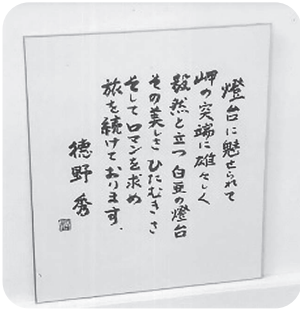 燈台に魅せられて
岬の突端に雄々しく
毅然と立つ白亜の燈台
その美しさひたむきさ
そしてロマンを求め
旅を続けております。
徳野秀